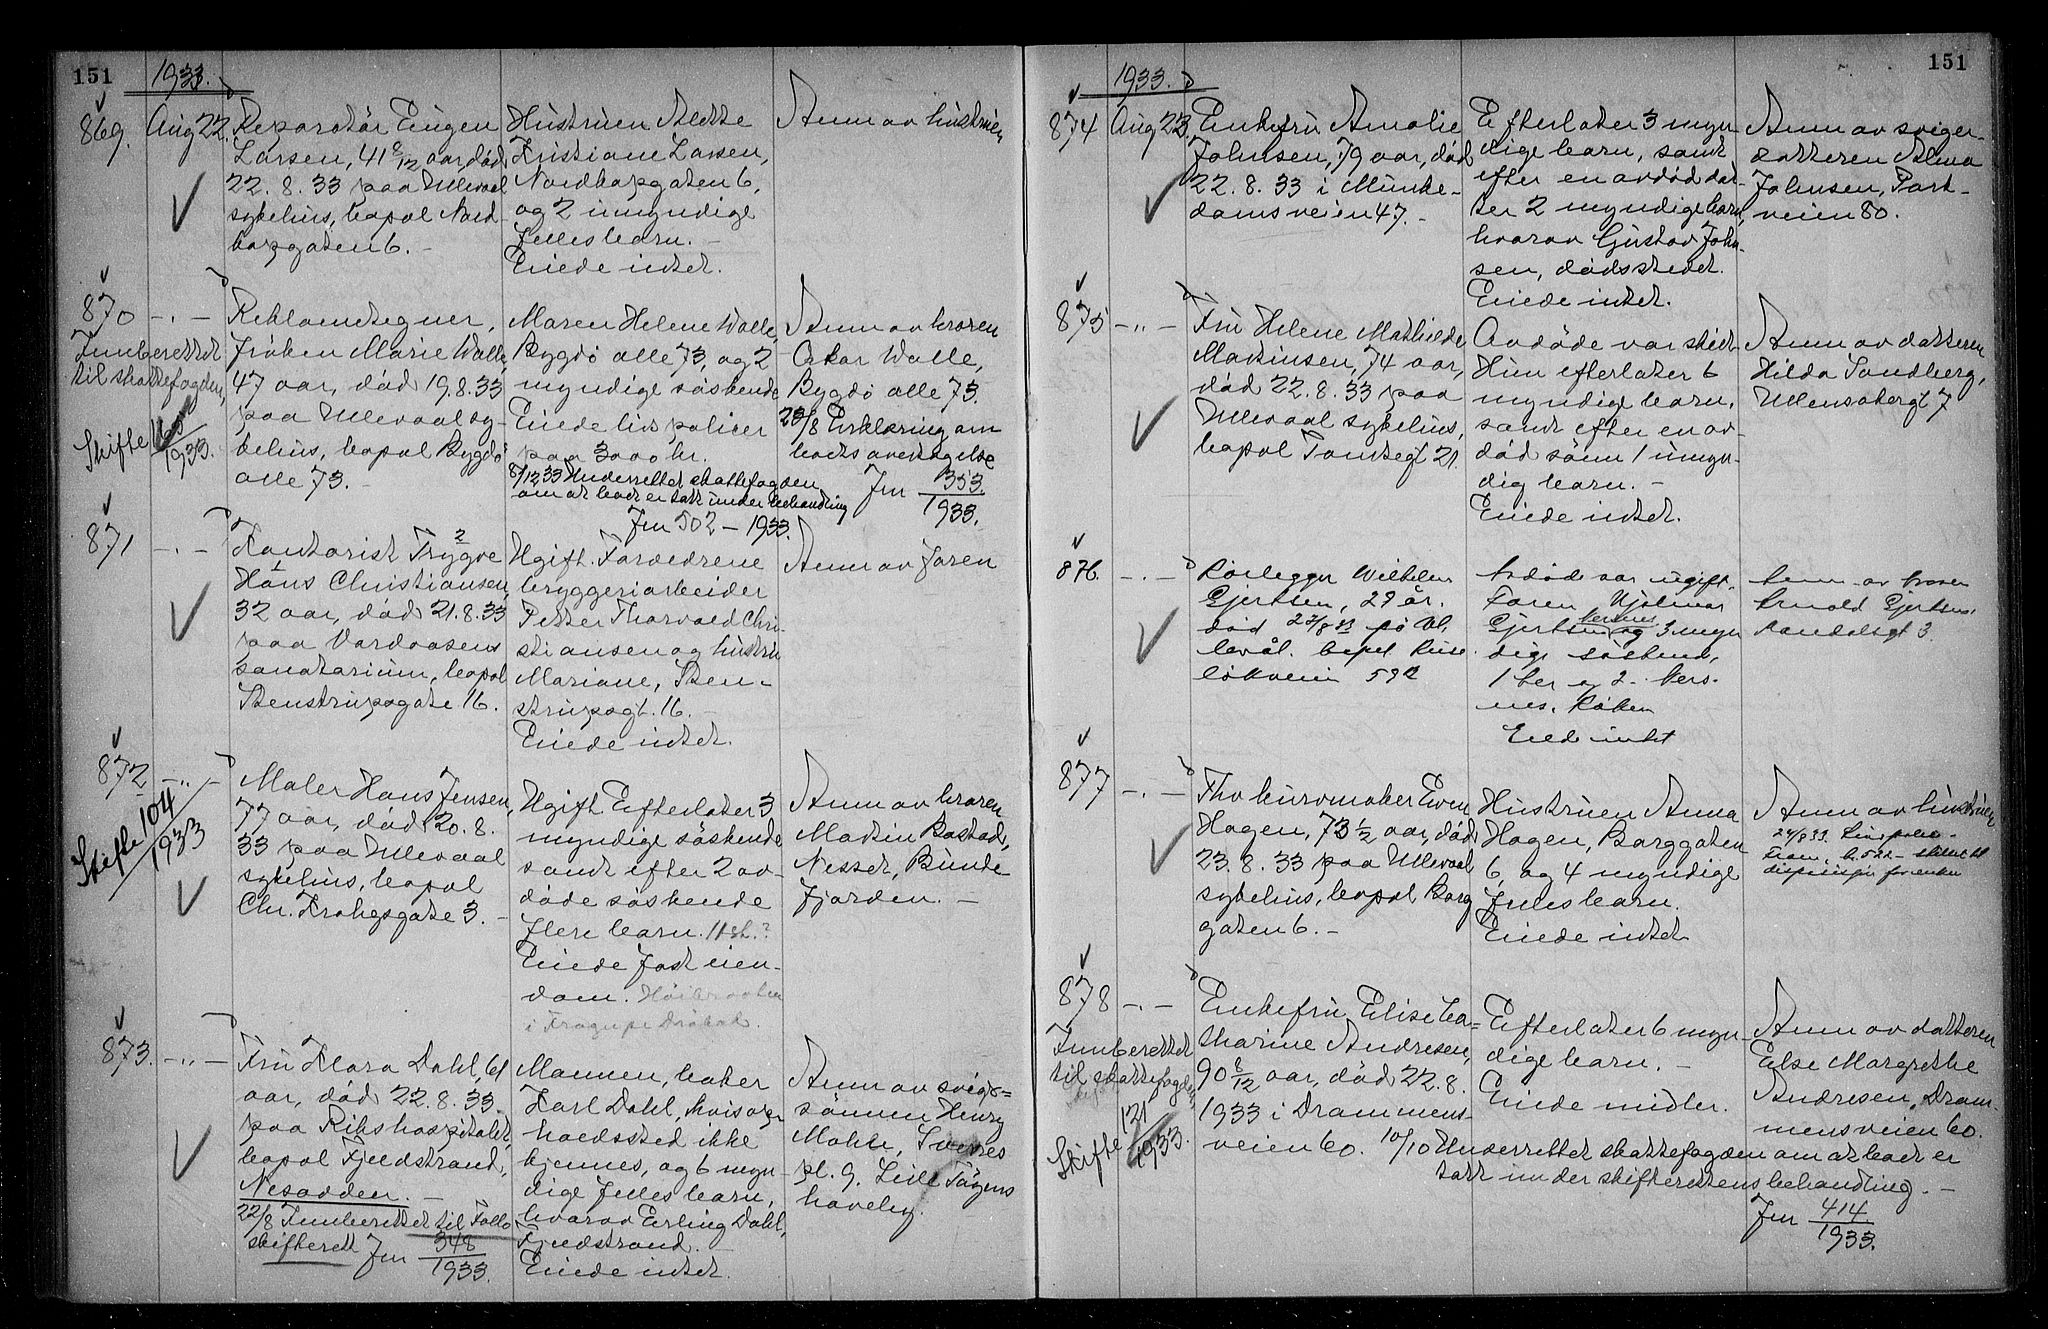 151
1933.
869. Aug 22.
Reparatør Eugen
Larsen, 41 8/12 aar, död
22.8.33 paa Ullevaal
sykehus, bopel Nord-
kapgaten 6. -
Hustruen Alette
Kristiane Larsen,
Nordkapgaten 6,
og 2 umyndige
fellesbarn. -
Eiede intet.
Anm av hustruen
870 - . -
Innberettet
til skattefogden,
Skifte 160/1933.
Reklametegner,
fröken Marie Walle,
47 aar, död 19.8.33
paa Ullevaal sy-
kehus, bopel Bygdö
alle 73. -
Maren Helene Walle,
Bygdö alle 73, og 2
myndige söskende
Eiede livspoliser
paa 3000 kr.
8/12 33 Underrettet skattefogden
om at boet er tatt under behandling
Jnr 502 - 1933.
Anm av broren
Oskar Walle,
Bygdö alle 73.
28/8 Erklæring om
boets overtagelse
Jnr 353/1933.
871 - . -
Kontorist Trygve
Hans Christiansen,
32 aar, död 21.8.33
paa Vardaasens
sanatorium, bopel
Stenstrupsgate 16.
Ugift. Foreldrene
bryggeriarbeider
Petter Thorvald Chri-
stiansen og hustru
Mariane, Sten-
strupsgt. 16. -
Eiede intet.
Anm av faren
872 - „ -
Skifte 104/1933
Maler Hans Jensen,
77 aar, död 20.8.
33 paa Ullevaal
sykehus, bopel
Chr. Krohgsgate 3. -
Ugift. Efterlater 3
myndige söskende
samt efter 2 av-
döde söskende
flere barn. 11 stk.?
Eiede fast eien-
dom. Höibraaten
i Frogn pr Dröbak.
Anm av broren
Martin Bastad,
Nesset, Bunde-
fjorden. -
873. - „ -
Fru Klara Dahl, 61
aar, död 22.8.33
paa Rikshospitalet,
bopel Fjeldstrand,
Nesodden. -
22/8 Innberettet til Follo
skifterett Jnr 348/1933.
Mannen, baker
Karl Dahl, hvis op-
holdssted ikke
kjennes, og 6 myn-
dige fellesbarn,
hvorav Erling Dahl,
Fjeldstrand. -
Eiede intet.
Anm av sviger-
sönnen Henry
Mohle,
pl. 9. Leile Tåsens
haveby.
151
1933.
874 Aug 23.
Enkefru Amalie
Johnsen, 79 aar, död
22.8.33 i Munke-
damsveien 47. -
Efterlater 3 myn-
dige barn, samt
efter en avdöd dat-
ter 2 myndige barn,
hvorav Gustav John-
sen, dödsstedet.
Eiede intet.
Anm av sviger-
datteren Alma
Johnsen, Park-
veien 80.
875 - „ -
Fru Helene Mathilde
Martinsen, 74 aar,
död 22.8.33 paa
Ullevaal sykehus,
bopel Tomtegt 21.
Avdöde var skilt
Hun efterlater 6
myndige barn,
samt efter en av-
död sönn 1 umyn-
dig barn. -
Eiede intet.
Anm av datteren
Hilda Sandberg,
Ullensakergt 7
876. - . -
Rörlegger Wilhelm
Gjertsen, 29 år.
död 22/8 33 på Ul-
levål. bopel Ruse-
lökveien 592
Avdöde var ugift.
Faren Hjalmar
Gjertsen og 3 myn
dige söskend,
1 her og 2
Röken
Eiede intet
Anm. av broren
Arnold Gjertsen,
3.
877 - . -
Fhv kurvmaker Even
Hagen, 73 1/2 aar, död
23.8.33 paa Ullevaal
sykehus, bopel Borg-
gaten 6. -
Hustruen Anna
Hagen, Borggaten
6, og 4 myndige
fellesbarn.
Eiede intet
Anm av hustruen
24/8 33. Livspolise -
Fram, 522 - stillet til
disposisjon for enken
878 - . -
Innberettet
til skattefogden
Skifte 121/1933.
Enkefru Elise Ca-
tharine Andresen,
90 8/12 aar, död 22.8.
1933 i Drammens-
veien 60.
Efterlater 6 myn-
dige barn. -
Eiede midler.
10/10 Underrettet skattefogden om at boet er
tatt under skifterettens behandling. -
Jnr 414/1933.
Anm av datteren
Else Margrethe
Andresen, Dram-
mensveien 60.